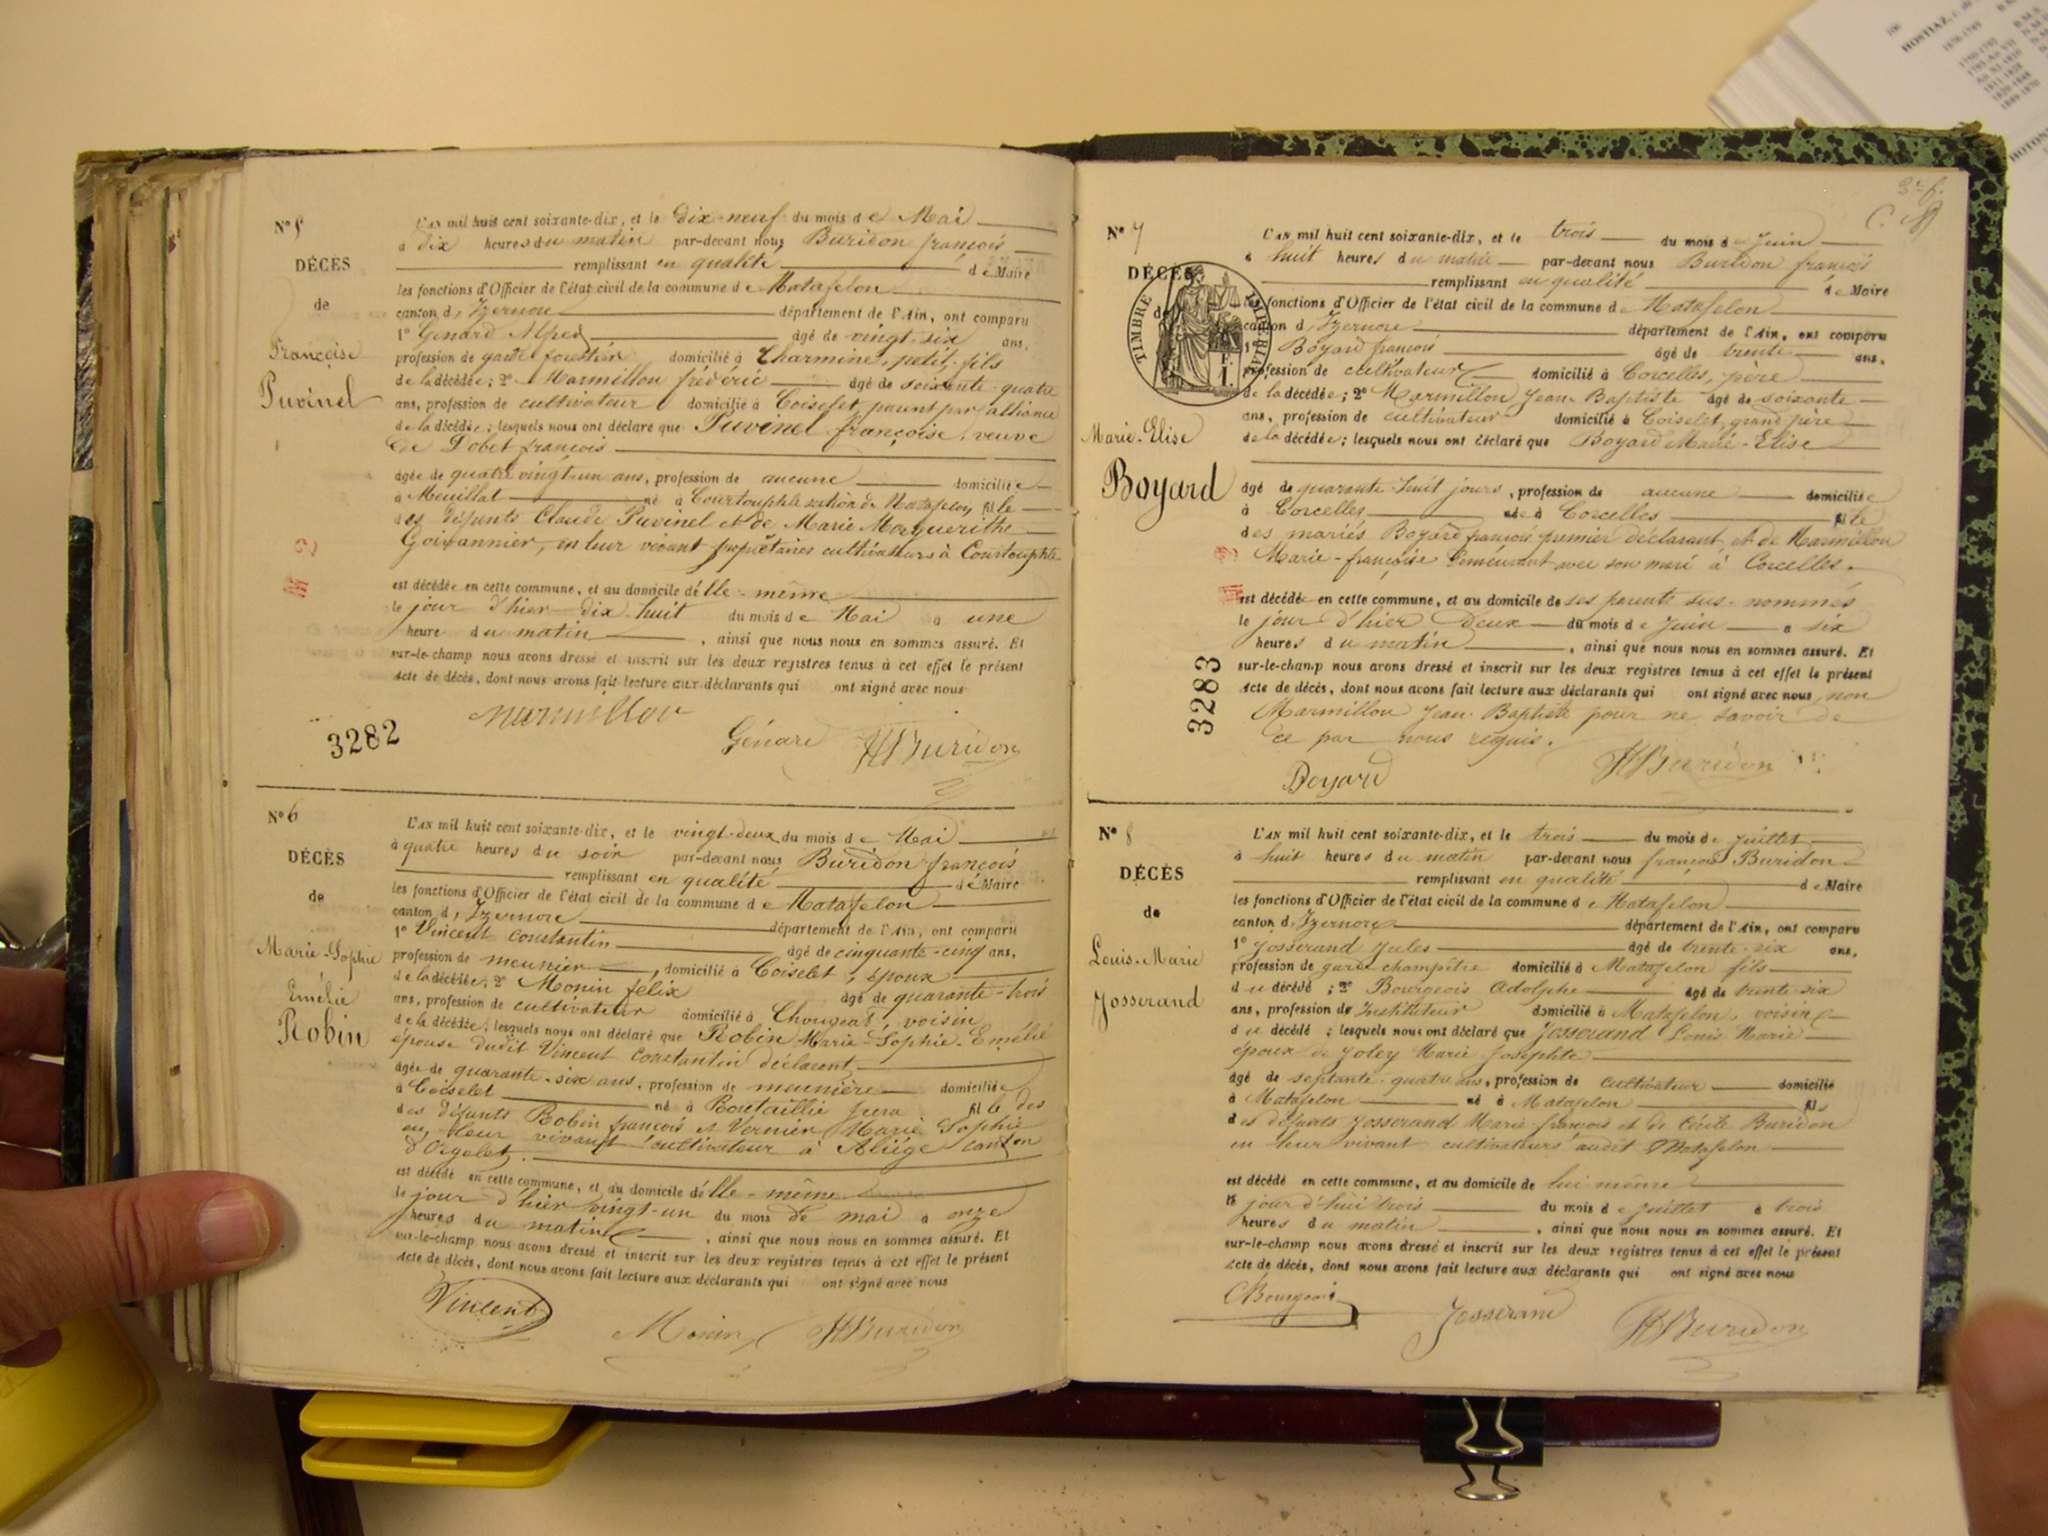 N° 5
DÉCÈS
de
Françoise
Puvinel
L'AN mil huit cent soixante-dix, et le dix-neuf du mois de Mai
à dix heures du matin par-devant nous Buridon françois
remplissant en qualité de Maire
les fonctions d'Officier de l'état civil de la commune de Matafelon
canton d'Izernore département de l'Ain, ont comparu
1° Génard Alfred âgé de vingt-six ans,
profession de garde forestier domicilié à Charmine, petit-fils
de la décédée; 2° Marmillon frédéric âgé de soixante-quatre
ans, profession de cultivateur domicilié à Coiselet parent par alliance
de la décédée; lesquels nous ont déclaré que Puvinel françoise, veuve
de Pobet françois
âgée de quatre vingt-un ans, profession de aucune domiciliée
à Meuillat né à Courtouphle section de Matafelon fille
des défunts Claude Puvinel et de Marie Marguerithe
Goiffannier, en leur vivant propriétaires cultivateurs à Courtouphle
est décédée en cette commune, et au domicile d'elle-même
le jour d'hier dix-huit du mois de Mai à une
heure du matin, ainsi que nous nous en sommes assuré. Et
sur-le-champ nous avons dressé et inscrit sur les deux registres tenus à cet effet le présent
acte de décès, dont nous avons fait lecture aux déclarants qui ont signé avec nous
Marmillon
Génard
Buridon
3282
N° 6
DÉCÈS
de
Marie-Sophie
Emélie
Robin
L'AN mil huit cent soixante-dix, et le vingt-deux du mois de Mai
à quatre heures du soir par-devant nous Buridon françois
remplissant en qualité de Maire
les fonctions d'Officier de l'état civil de la commune de Matafelon
canton d'Izernore département de l'Ain, ont comparu
1° Vincent Constantin âgé de cinquante-cinq ans,
profession de meunier, domicilié à Coiselet, époux
de la décédée; 2° Monin félix âgé de quarante-trois
ans, profession de cultivateur domicilié à Chougeat, voisin
de la décédée; lesquels nous ont déclaré que Robin Marie-Sophie-Emélie
épouse dudit Vincent Constantin déclarant
âgée de quarante-six ans, profession de meunière domiciliée
à Coiselet né à Boutaillie Jura fille des
des défunts Robin françois et Vernier Marie Sophie
en leur vivant cultivateur à Aliége canton
d'Orgelet.
est décédé en cette commune, et au domicile d'elle-même
le jour d'hier vingt-un du mois de mai à onze
heures du matin, ainsi que nous nous en sommes assuré. Et
sur-le-champ nous avons dressé et inscrit sur les deux registres tenus à cet effet le présent
acte de décès, dont nous avons fait lecture aux déclarants qui ont signé avec nous
Vincent
Monin
Buridon
2e f.
N° 7
DÉCÈS
de
TIMBRE IMPÉRIAL
Marie-Elise
Boyard
L'AN mil huit cent soixante-dix, et le trois du mois de Juin
à huit heures du matin par-devant nous Buridon françois
remplissant en qualité de Maire
les fonctions d'Officier de l'état civil de la commune de Matafelon
canton d'Izernore département de l'Ain, ont comparu
1° Boyard françois âgé de trente ans,
profession de cultivateur domicilié à Corcelles, père
de la décédée; 2° Marmillon Jean-Baptiste âgé de soixante
ans, profession de cultivateur domicilié à Coiselet, grand père
de la décédée; lesquels nous ont déclaré que Boyard Marie-Elise
âgé de quarante-huit jours, profession de aucune domiciliée
à Corcelles née à Corcelles fille
des mariés Boyard françois premier déclarant et de Marmillon
Marie-françoise demeurant avec son mari à Corcelles.
est décédée en cette commune, et au domicile de ses parents sus-nommés
le jour d'hier deux du mois de Juin à six
heures du matin, ainsi que nous nous en sommes assuré. Et
sur-le-champ nous avons dressé et inscrit sur les deux registres tenus à cet effet le présent
acte de décès, dont nous avons fait lecture aux déclarants qui ont signé avec nous, non
Marmillon Jean-Baptiste pour ne savoir de
ce par nous requis.
Boyard
Buridon
3283
N° 8
DÉCÈS
de
Louis-Marie
Josserand
L'AN mil huit cent soixante-dix, et le trois du mois de Juillet
à huit heures du matin par-devant nous françois Buridon
remplissant en qualité de Maire
les fonctions d'Officier de l'état civil de la commune de Matafelon
canton d'Izernore département de l'Ain, ont comparu
1° Josserand Jules âgé de trente-six ans,
profession de garde champêtre domicilié à Matafelon fils
du décédé; 2° Bourgeois Adolphe âgé de trente-six
ans, profession d'Instituteur domicilié à Matafelon, voisin
du décédé; lesquels nous ont déclaré que Josserand Louis Marie
époux de Joley Marie Josephte
âgé de septante-quatre ans, profession de cultivateur domicilié
à Matafelon né à Matafelon fils
des défunts Josserand Marie françois et de Cécile Buridon
en leur vivant cultivateurs audit Matafelon
est décédé en cette commune, et au domicile de lui même
le jour d'hui trois du mois de Juillet à trois
heures du matin, ainsi que nous nous en sommes assuré. Et
sur-le-champ nous avons dressé et inscrit sur les deux registres tenus à cet effet le présent
acte de décès, dont nous avons fait lecture aux déclarants qui ont signé avec nous
Bourgeois
Josserand
Buridon